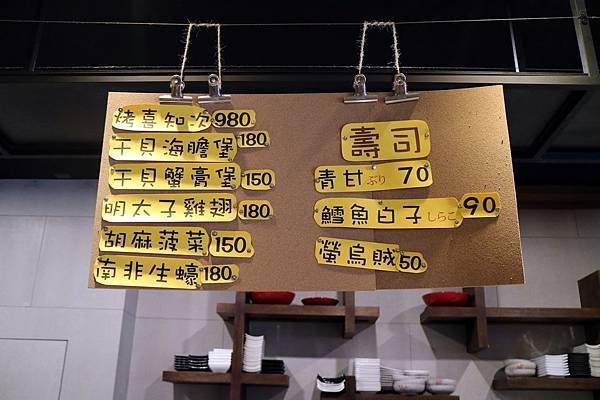 烤喜知次 980
干貝海膽堡 180
干貝蟹膏堡 150
明太子雞翅 180
胡麻菠菜 150
南非生蠔 180
壽司
青甘ぶり 70
鱈魚白子しらこ 90
螢烏賊 50